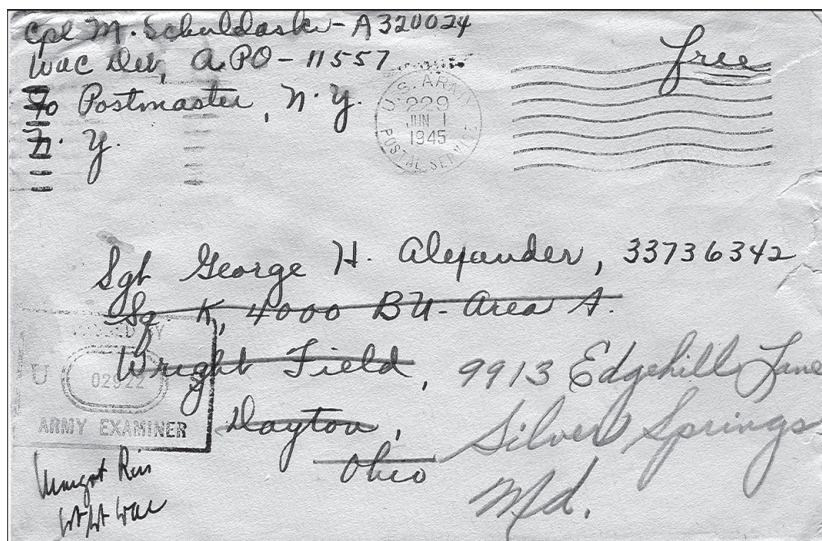 Cpl M. Schuldaski - A320024
Wac Det, A.PO - 11557
To Postmaster, N.Y.
N.Y.
free
U.S. ARMY
229
JUN 1
1945
POSTAL SERVICE
Sgt George H. Alexander, 33736342
Sq K, 4000 BU - Area A.
Wright Field,
Dayton,
Ohio
9913 Edgehill Lane
Silver Springs
Md.
BY
U S
02922
ARMY EXAMINER
1st Lt WAC